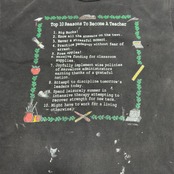 Top 10 Reasons To Become A Teacher
1. Big Bucks!
2. Know all the answers on the test.
3. Never a stressful moment.
4. Practice without fear of
arrest.
5. Free apples!
6. Massive funding for classroom
supplies.
7. Joyfully implement wise policies
of
8. Attempt to discipline tomorrow's
leaders today.
9. Spend leisurely summer in
intensive therapy attempting to
recover strength for the next
10. Might have to work for a living
otherwise!